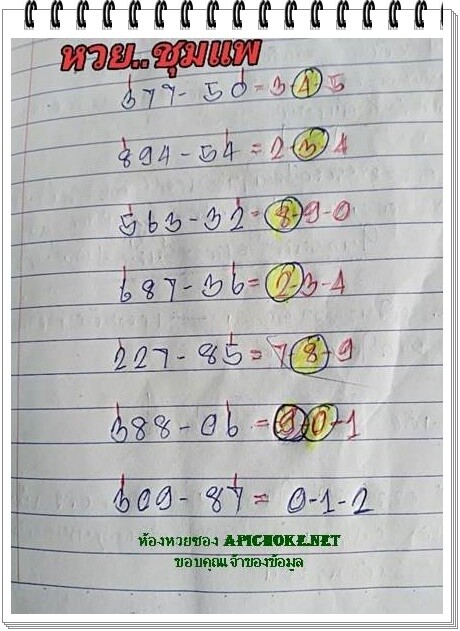 หวย..ชุมแพ
377-50=345
894-54=234
563-32=8-9-0
687-36=2-3-4
227-85=7-8-9
388-06=9-0-1
609-87=0-1-2
ห้องหวยซอง APICHOKE.NET
ขอบคุณเจ้าของข้อมูล